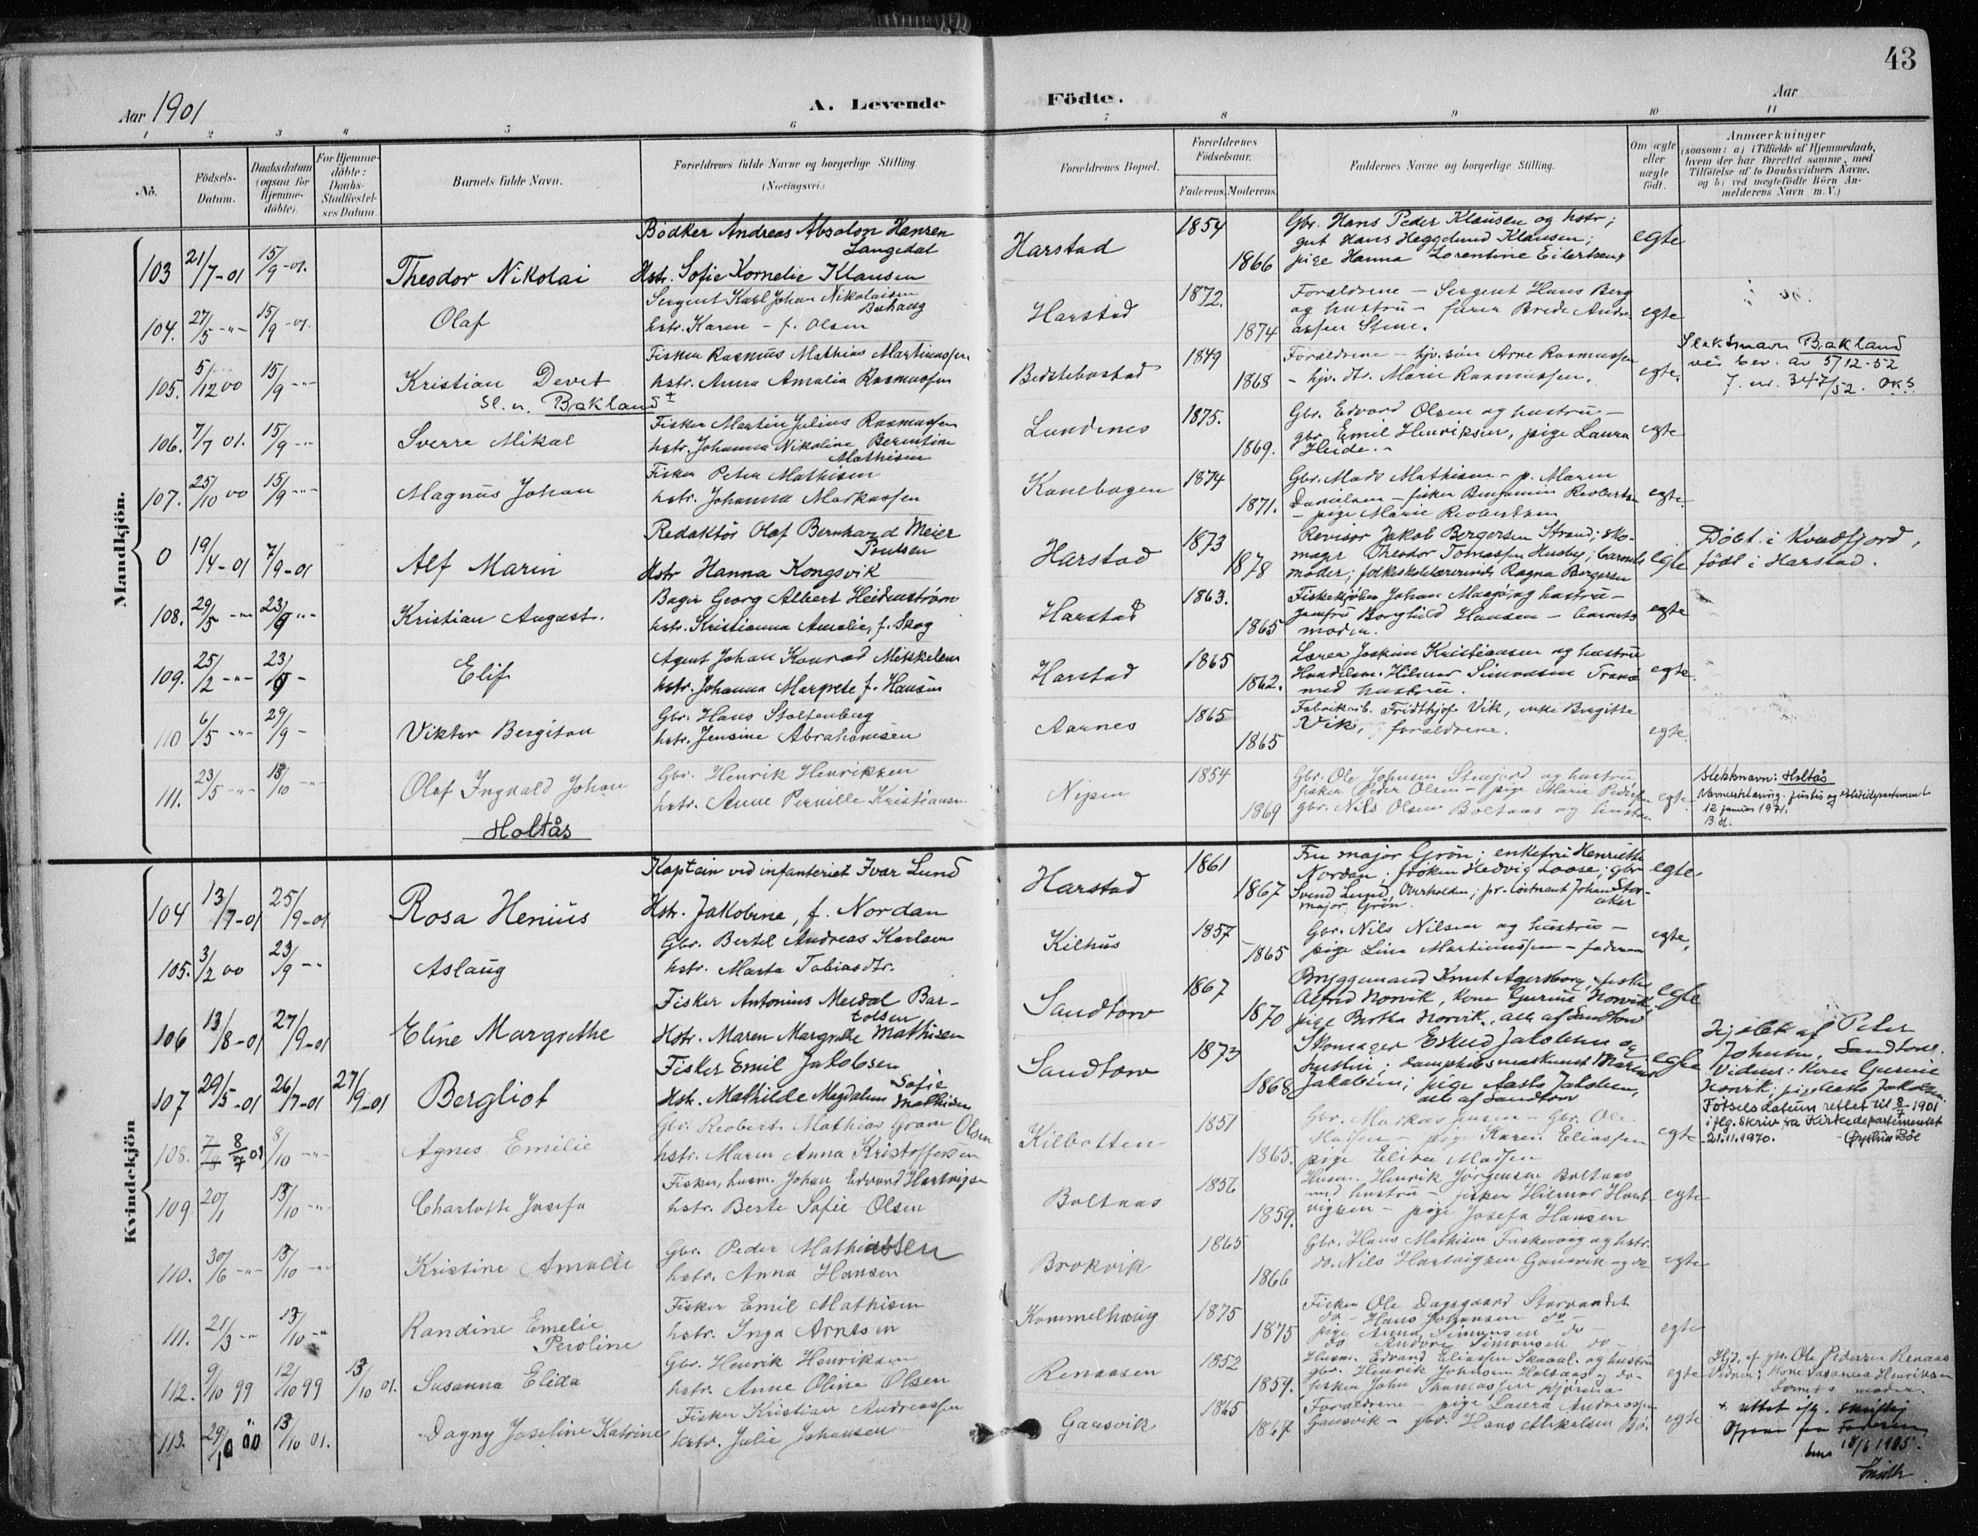 43
Aar 1901
A. Levende Födte.
Aar
1 2 3 4 5 6 7 8 9 10 11
No.
Födsels-Datum.
Daabsdatum (ogsaa for Hjemmedöbte).
For Hjemmedöbte: Daabs-Stadfæstelses Datum.
Barnets fulde Navn.
Forældrenes fulde Navne og borgerlige Stilling.
(Næringsvei.)
Forældrenes Bopæl.
Forældrenes Födselsaar.
Faderens. Moderens.
Faddernes Navne og borgerlige Stilling.
Om ægte eller uægte födt.
Anmærkninger
(saasom: a) i Tilfælde af Hjemmedaab, hvem der har forrettet samme, med Tilföielse af to Daabsvidners Navne, og b) ved uægtefödte Börn Anmelderens Navn m. V.)
Mandkjön.
103 21/7-01 15/9-01. Theodor Nikolai
Bødker Andreas Absolon Hansen
Langedal
Hstr. Sofie Kornelie Klausen
Harstad 1854 1866
Gbr. Hans Peder Klausen og hstr;
gut Hans Heggelund Klausen;
pige Hanna Lorentine Eilertseng
egte
104. 27/5 -"- 15/9-01. Olaf
Sergent Karl Johan Nikolaisen
hstr. Karen - f. Olsen
Harstad 1872. 1874
Forældrene - Sergent Hans Berg
og hustru - furer Brede Andre
assen Stene.
egte
105. 5/12 00 15/9 -"- Kristian Devet
Sl. n. Bakland
Fisker Rasmus Mathias Martinussen
hstr. Anna Amalia Rasmussen
1849 1868
Forældrene - hjv. søn Arne Rasmussen
- hjv. dt. Marie Rasmussen.
egte.
Slektsnavn Bakland
ved bev. av 5/12-52
J. nr. 347/52.
106. 7/7 01. 15/9 -"- Sverre Mikal
Fisker Martin Julius Rasmussen
hstr. Johanna Nikoline Berntine
Mathisen
Lundenes 1875. 1869.
Gbr. Edvard Olsen og hustru -
gbr. Emil Henriksen, pige Laura
egte
107. 25/10 00 15/9 -"- Magnus Johan
Fisker Peter Mathisen
hstr. Johanna Markussen
Kanebogen 1874 1871.
Gbr. Mads Mathisen - p. Maren
Danielsen - fisker Benjamin
- pige Marie
egte
0 19/4-01 7/9-01 Alf Marin
Redaktør Olaf Bernhard Meier
Poulsen
Hstr Hanna Kongsvik
Harstad 1873 1878
Revisor Jakob Bergersen Strand; sko-
mager Theodor Tobiassen Husby; barnets
moder; folkeskolelærerinde Ragna Bergersen
egte
Døbt i Kvædfjord,
født i Harstad.
108. 29/5 -"- 23/9 -"- Kristian August.
Bager Georg Albert Heidenstrøm
hstr. Kristianna Amalie, f. Skog
Harstad 1863. 1865
Fiskekjøber Johan Maagø og hustru -
jomfru Borghild Hansen - barnets
moder.
egte
109. 25/2 -"- 23/9 - Elif
Agent Johan Konrad Mikkelsen
hstr. Johanna Margrete f. Hansen
Harstad 1865 1862.
Lærer Joakim Kristiansen og hustru
Handelsm. Hilmar Simonsen Tranø
med hustru.
egte.
110 6/5 -"- 29/9 - Viktor Bergiton
Gbr. Hans Stoltenberg
hstr. Jensine Abrahamsen
Aarnes 1865 1865
Fabrikarb. Fridthjof Vik, enke Bergitte
Vik, forældrene.
egte.
111. 23/5 -"- 13/10 -"- Olaf Ingvald Johan
Holtås
Gbr. Henrik Henriksen
hstr. Anne Pernille Kristiansen
Nipen 1854 1869
Gbr. Ole Johnsen Stenjord og hustru
fisker Peder Olsen - pige Marie Pedersen
gbr. Nils Olsen Boltaas og hustru
egte
Slektsnavn: Holtås
Navneerklæring: Justis og Politidepartementet
12 januar 1971.
B.d.
Kvindekjön
104 13/7-01 25/9-01 Rosa Henius
Kaptein ved infanteriet Ivar Lund
Hstr. Jakobine, f. Nordan
Harstad 1861 1867
Fru major Grön; enkefru Henriette
Nordan; frøken Hedvig Loose; gbr
Svend Lund, Overholden; pr. løitnant Johan Stor-
aker
major Grön.
egte
105. 3/2 00 23/9 -"- Aslaug
Gbr. Bertel Andreas Karlsen
hstr. Marta Tobiasdtr.
Kilhus 1857 1865
Gbr. Nils Nilsen og hustru -
pige Lina Martinussen - faderen
egte,
106 13/8-01 27/9-01 Eline Margrethe
Fisker Antonius Meidal Bar-
tolsen
Hstr. Maren Margrethe Mathisen
Sandtorv 1867 1870
Bryggemand Knut Agersborg, fisker
Alfred Norvik, kone Gurine Norvik,
pige Brotha Norvik, alle af Sandtorv
egte
107 29/5-01 26/7-01 27/9-01 Bergliot
Fisker Emil Jakobsen
Hstr. Mathilde Magdalena Sofie
Mathisen
Sandtorv 1873 1868
Skomager Eskild Jakobsen og
hustru; dampskibsmaskinist Marius
Jakobsen; pige Aasta Jakobsen,
alle af Sandtorv
egte
Hj.døbt af Peter
Johnsen, Sandtorv.
Vidner: Kone Gurine
Norvik; pige Aasta Jakobsen
108. 7/8 8/7 01 8/10 -"- Agnes Emilie
Gbr. Reobert Mathias Gram Olsen
hstr. Maren Anna Kristoffersen
Kilbotten 1851 1865.
Gbr. Markus Jensen - Gbr. Ole
- pige Karen Eliassen
pige Elisa Madsen
egte
Fødselsdatum rettet til 8/7 1901
iflg. skriv fra Kirkedepartementet
21.11.1970.
109 20/1 13/10 -"- Charlotte Josefa
Fisker, husm. Johan Edvard Hartvigsen
hstr. Berte Sofie Olsen
Boltaas 1856 1859.
Husm. Henrik Jørgensen Boltaas
med hustru - fisker Hilmar Hart
vigsen - pige Josefa Hansen
egte
110. 30/6 -"- 13/10 -"- Kristine Amalie
Gbr. Peder Mathiassen
hstr. Anna Hansen
Brokvik 1865 1866
Gbr. Hans Mathisen Fuskevaag og hstr.
do. Nils Hartvigsen Gausvik og do
egte
111. 21/3 -"- 13/10 -"- Randine Emelie
Peroline
Fisker Emil Mathisen
hstr. Inga Arntsen
Kommelhaug 1875 1875
Fisker Ole Dagsgaard Storvandet
do - Hans Johansen do -
pige Anna Simonsen do -
do Andore Simonsen do
egte
112. 9/10 99 12/10 99 13/10 01. Susanna Elida
Gbr. Henrik Henriksen
hstr. Anne Oline Olsen
Renaasen 1852 1859.
Husm. Edvard Eliassen Skaaal. og hustru
gbr. Henrik Johnsen Holtaas og do -
fisker John Thomassen
egte
Hjd. af gbr. Ole Pedersen Renaas
Vidner: Kone Susanna Henriksen
barnets moder.
113. 29/10 00 13/10 01. Dagny Josefine Katrine
Fisker Kristian Andreassen
hstr. Julie Johansen
Gausvik 1865 1867
Forældrene - pige Laura Andreassen
Gausvik - gbr. Hans Mikalsen Bø.
egte
+ rettet efg. skriftlig
Opgave fra Faderen
Smith